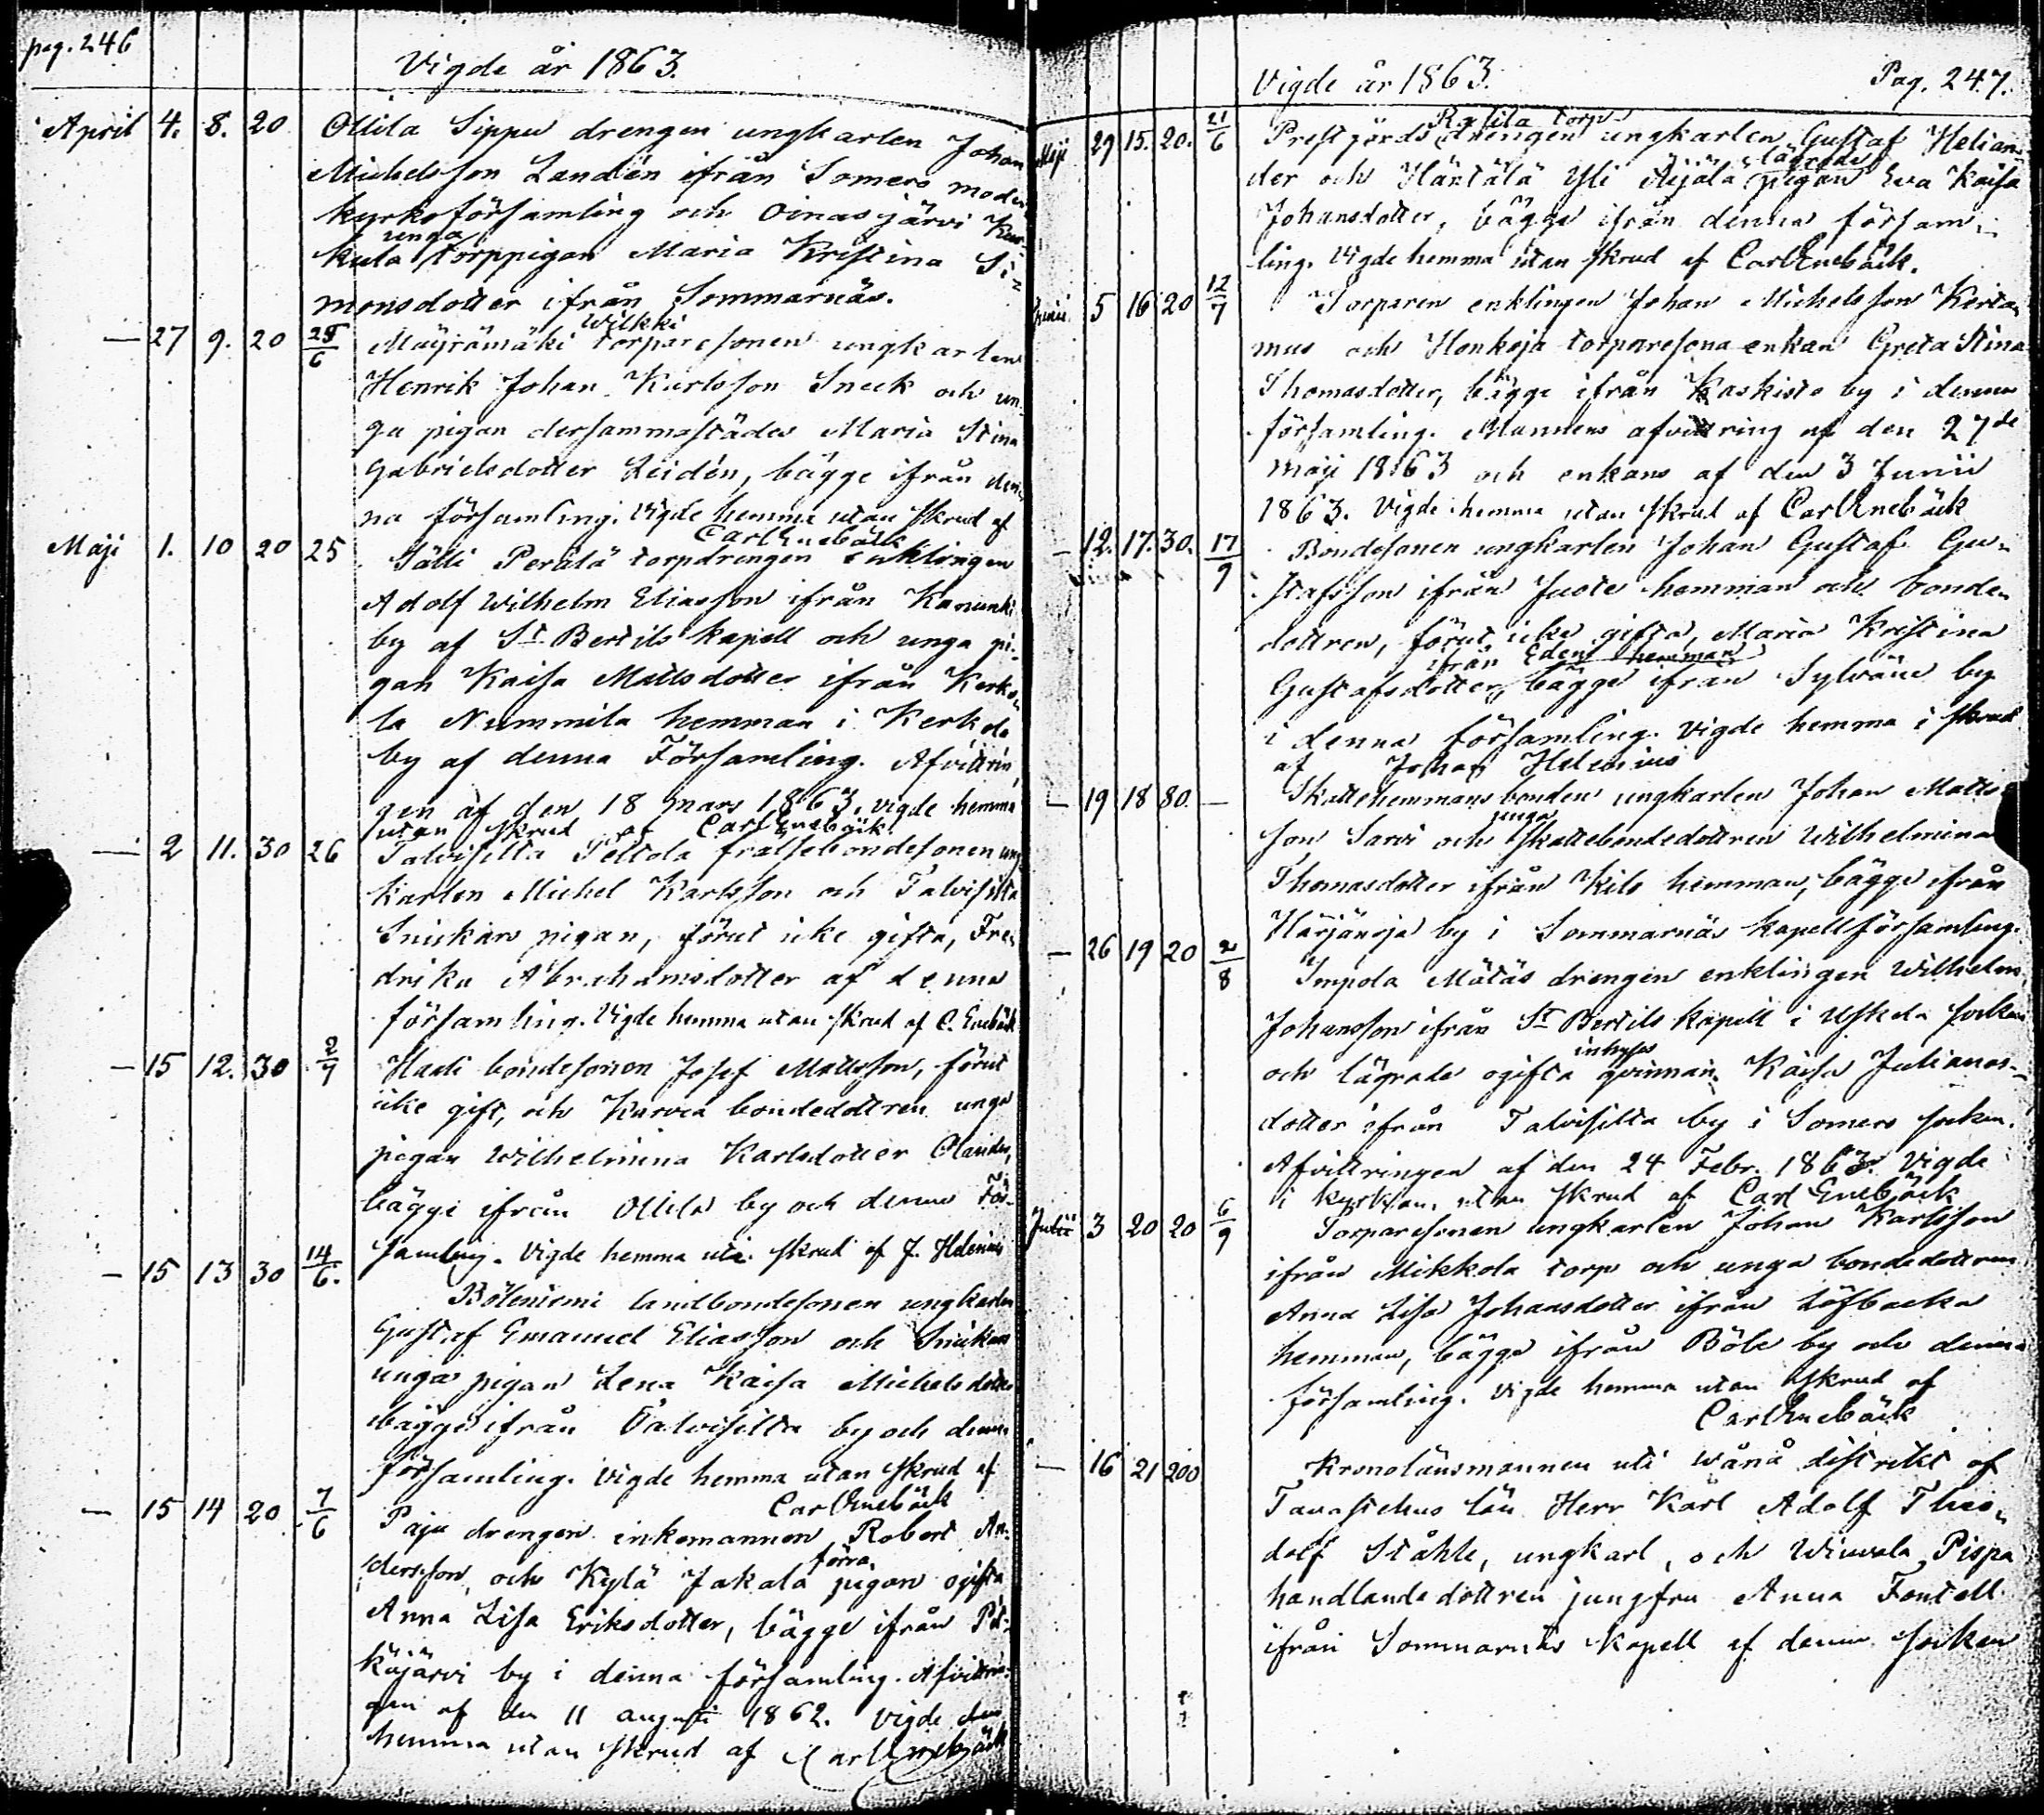 pag. 246
Vigde år 1863.
April 4. 8. 20 Ollila Sippu drengen ungkarlen Johan
Michelsson Landén ifrån Somero moder
kyrkoförsamling och Oinasjärvi
unga
torppigan Maria Kristina Si-
monsdotter ifrån Sommarnäs.
Wilkki
— 27 9. 20 Mäyrämäki torparesonen ungkarlen
Henrik Johan Karlsson Sneck och un-
ga pigan dersammastädes Maria Stina
Gabrielsdotter Leidén, bägge ifrån den-
na församling. Vigde hemma utan skrud af
Carl Enebäck
Maji 1. 10 20 25 Sälli Perälä torpdrengen enklingen
Adolf Wilhelm Eliasson ifrån Kanunki
by af St Bertils kapell och unga pi-
gan Kaisa Mattsdotter ifrån Kerko-
la Nummila hemman i Kerkola
by af denna Församling. Afvittrin-
gen af den 18 Mars 1863. vigde hemma
utan skrud af Carl Enebäck.
— 2 11. 30 26 Talvisilta Peltola frälsebondesonen ung
karlen Michel Karlsson och Talvisilta
Snickars pigan, förut icke gifta, Fre-
drika Abrahamsdotter af denna
församling. Vigde hemma utan skrud af C. Enebäck
— 15 12. 30 2/7 Hasli bondesonen Josef Mattsson, förut
icke gift, och Karvia bondedottren unga
pigan Wilhelmina Karlsdotter Olander,
bägge ifrån Ollila by och denna För-
samling. Vigde hemma uti skrud af J. Helenius
— 15 13 30 14/6. Böleniemi landbondesonen ungkarlen
Gustaf Emanuel Eliasson och Snickars
unga pigan Lena Kaisa Michelsdotter
bägge ifrån Talvisilta by och denna
församling. Vigde hemma utan skrud af
Carl Enebäck
— 15 14 20 7/6 Paju drengen enkemannen Robert An-
förra
dersson, och Kylä Jakala pigan ogifta
Anna Lisa Eriksdotter, bägge ifrån Pit-
käjärvi by i denna församling. Afvittrin-
gen af den 11 augusti 1862. Vigde
hemma utan skrud af Carl Enebäck
Vigde år 1863. Pag. 247.
torp
Maji 29 15. 20. 21/6 Prestgårds drengen ungkarlen Gustaf Helian-
lägrade
der och Häntälä Yli Äijälä pigan Eva Kaisa
Johansdotter, bägge ifrån denna försam-
ling. Vigde hemma utan skrud af Carl Enebäck.
Junii 5 16 20 12/7 Torparen enklingen Johan Michelsson Kerta-
mus och Honkoja torparesona enkan Greta Stina
Thomasdotter, bägge ifrån Kaskisto by i denna
församling. Mannens afvittring af den 27de
Maji 1863 och enkans af den 3 Junii
1863. Vigde hemma utan skrud af Carl Enebäck
— 12. 17. 30. 17/9 Bondesonen ungkarlen Johan Gustaf Gu-
stafsson ifrån Juote hemman och bonde-
dottren, förut icke gifta, Maria Kristina
ifrån Eden hemman
Gustafsdotter, bägge ifrån Sylvänä by
i denna församling. Vigde hemma i skrud
af Johan Helenius
— 19 18 80. — Skattehemmans bonden ungkarlen Johan Matts-
unga
son Sarvi och skattebondedottren Wilhelmina
Thomasdotter ifrån Kilo hemman, bägge ifrån
Härjänoja by i Sommarnäs kapellförsamling.
— 26 19 20 2/8 Impola Mätäs drengen enklingen Wilhelm
Johansson ifrån St Bertils kapell i Uskela socken
inhyses
och lägrade ogifta qvinnan Kaisa Julianas-
dotter ifrån Talvisilta by i Somero socken.
Afvittringen af den 24 Febr. 1863. Vigde
i kyrkan utan skrud af Carl Enebäck
Julii 3 20 20 6/9 Torparesonen ungkarlen Johan Karlsson
ifrån Mikkola torp och unga bondedottren
Anna Lisa Johansdotter ifrån Löfbacka
hemman, bägge ifrån Böle by och denna
församling. Vigde hemma utan skrud af
Carl Enebäck
— 16 21 200 Kronolänsmannen uti Wånå distrikt af
Tavastehus län Herr Karl Adolf Theo-
dolf Ståhle, ungkarl, och Wiuvala Pispa
handlande dottren jungfru Anna Fontell
ifrån Sommarnäs kapell af denna socken